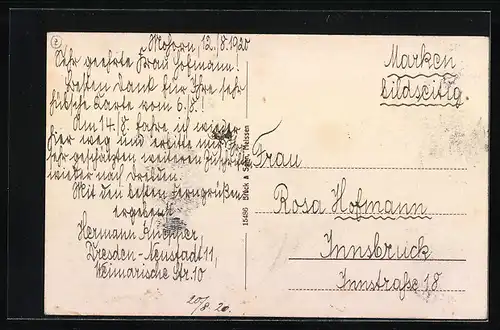 Mohorn, 12./8.1920
Sehr geehrte Frau Hofmann!
Besten Dank für Ihre sehr
hübsche Karte vom 6.8.!
Am 14.8. fahre ich wieder
hier weg und erbitte mir Ihre
sehr geschätzten weiteren Zuschriften
wieder nach Dresden.
Mit den besten Ferngrüßen
ergebenst
Hermann
Dresden-Neustadt 11,
Weimarische Str. 10
20/8.20.
15486 Brück & Sohn, Meissen
Marken
bildseitig.
Frau
Rosa Hofmann
Innsbruck
Innstraße 18